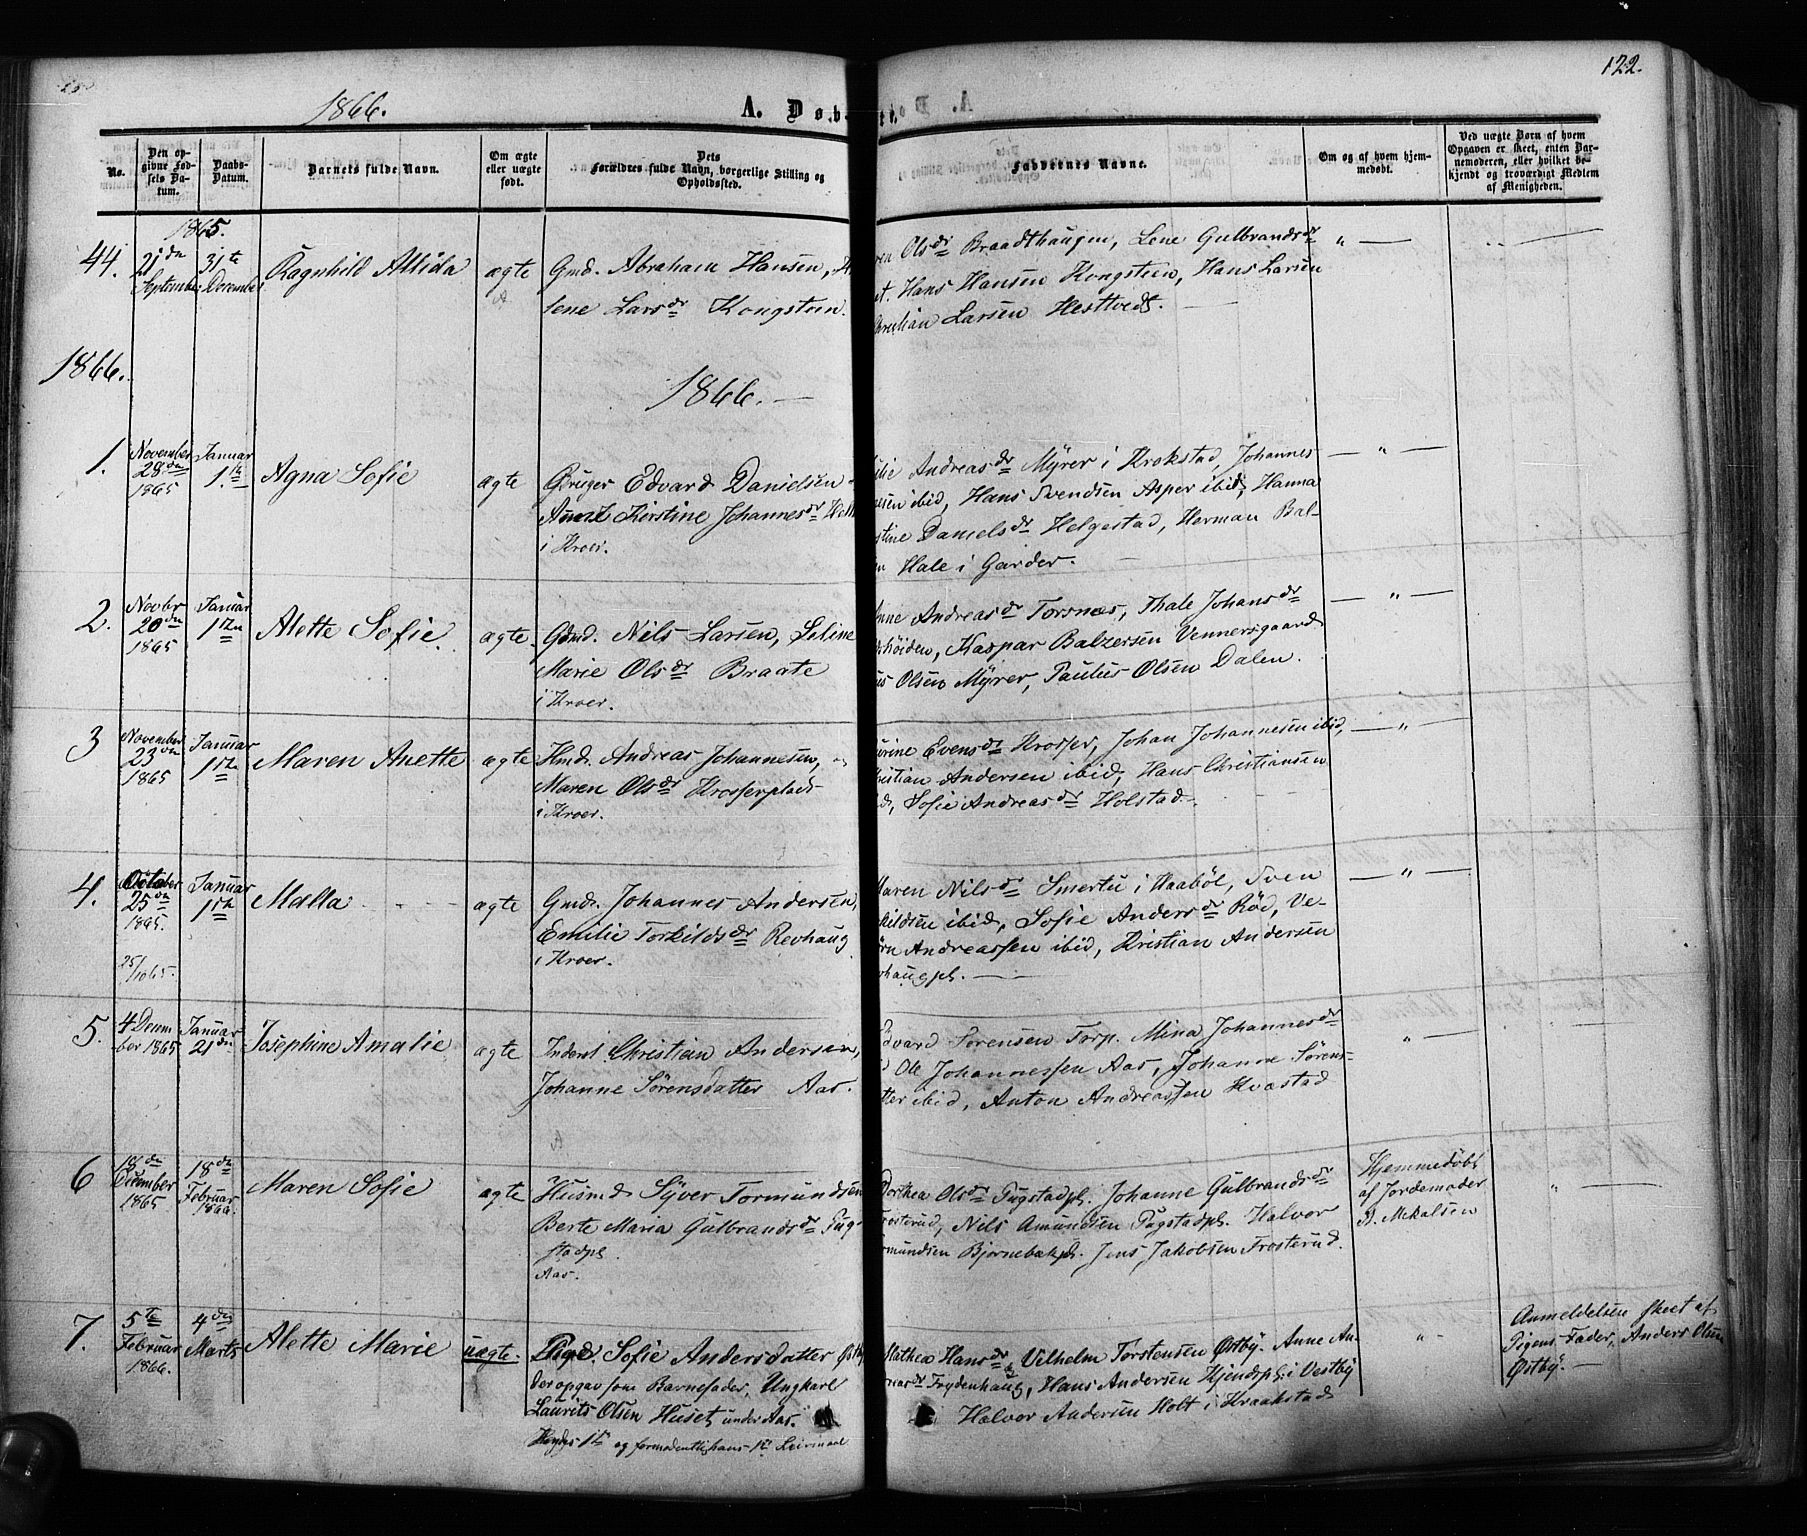 122.
1866.
A. Døb
No.
Den opgivne Fødsels Datum.
Daabs-Datum.
Barnets fulde Navn.
Om ægte eller uægte født.
Dets Forældres fulde Navn, borgerlige Stilling og Opholdssted.
Faddernes Navne.
Om og af hvem hjemmedøbt.
Ved uægte Børn af hvem Opgaven er skeet, enten Barnemoderen, eller hvilket bekjendt og troværdigt Medlem af Menigheden.
1865.
44.
21de September
31te December
Ragnhild Alvida
ægte
Gmd. Abraham Hansen,
lene Larsdr Kongsteen.
Olsdr Braadthaugen, Lene Gulbrandsdr
Hans Hansen Kongsteen, Hans Larsen
Larsen Hesttvedt.
1866.
1866.
1.
November 28de 1865
Januar 1ste
Agna Sofie
ægte
Bruger Edvard Danielsen
Kirstine Johannesdr
i Kroer.
Andreasdr Myrer i Krokstad, Johannes
ibid, Hans Svendsen Asper ibid, Hanna
Danielsdr Helgestad, Herman Bal-
Hale i Garder.
2.
Novbr 20de 1865
Januar 1ste
Alette Sofie.
ægte
Gdmd. Nils Larsen, Seline
Marie Olsdr Braate
i Kroer.
Anne Andreasdr Torsnes, Thale Johansdr
høiden, Kaspar Balzersen Vennersgaard
Olsen Myrer, Paulus Olsen Dalen.
3
November 23de 1865
Januar 1ste
Maren Anette
ægte
Hmd. Andreas Johannesen,
Maren Olsdr Krosserplads
i Kroer.
Evensdr Krosser, Johan Johannesen ibid,
Andersen ibid, Hans Christiansen
Sofie Andreasdr Holstad.
4.
October 25de 1865.
25/10 65.
Januar 1ste
Malla
ægte
Gmd. Johannes Andersen,
Emilie Torkildsdr Revhaug
i Kroer.
Maren Nilsdr Smertu i Haabøl, Sven
ibid, Sofie Andersdr Rød, Ve-
Andreassen ibid, Kristian Andersen
5.
4 December 1865
Januar 21de
Josephine Amalie
ægte
Inderst Christian Andersen,
Johanne Sørensdatter Aas.
Sørensen Torp. Mina Johannesdr
Ole Johannessen Aas, Johanne Sørens-
ibid, Anton Andreassen Kvestad
6
18de December 1865
18de Februar 1866.
Maren Sofie
ægte
Husmd Syver Tormundsen
Berte Maria Gulbrandsdr Tug-
stadpl.
Aas.
Dorthea Olsdr Tugstadpl. Johanne Gulbrandsdr
Frosterud, Nils Amundsen Tugstadpl. Halvor
Bjørnebekpl. Jens Jakobsen Frosterud.
Hjemmedøbt
af Jordemoder
B. Mikalsen
7.
5te Februar 1866.
4de Marts
Alette Marie
uægte.
Pige Sofie Andersdatter Østby
der opgav som Barnefader, Ungkarl
Laurits Olsen Huset, under Aas.
Hendes 1ste og formodentlig hans 1ste Leiermaal
Mathea Hansdr, Vilhelm Torstensen Østby. Anne An-
Frydenhaug, Hans Andersen Hjendspl. i Vestby
Halvor Andersen Holt i Kraakstad
Anmeldelsen skeet af
Pigens Fader, Anders Olsen
Østby.